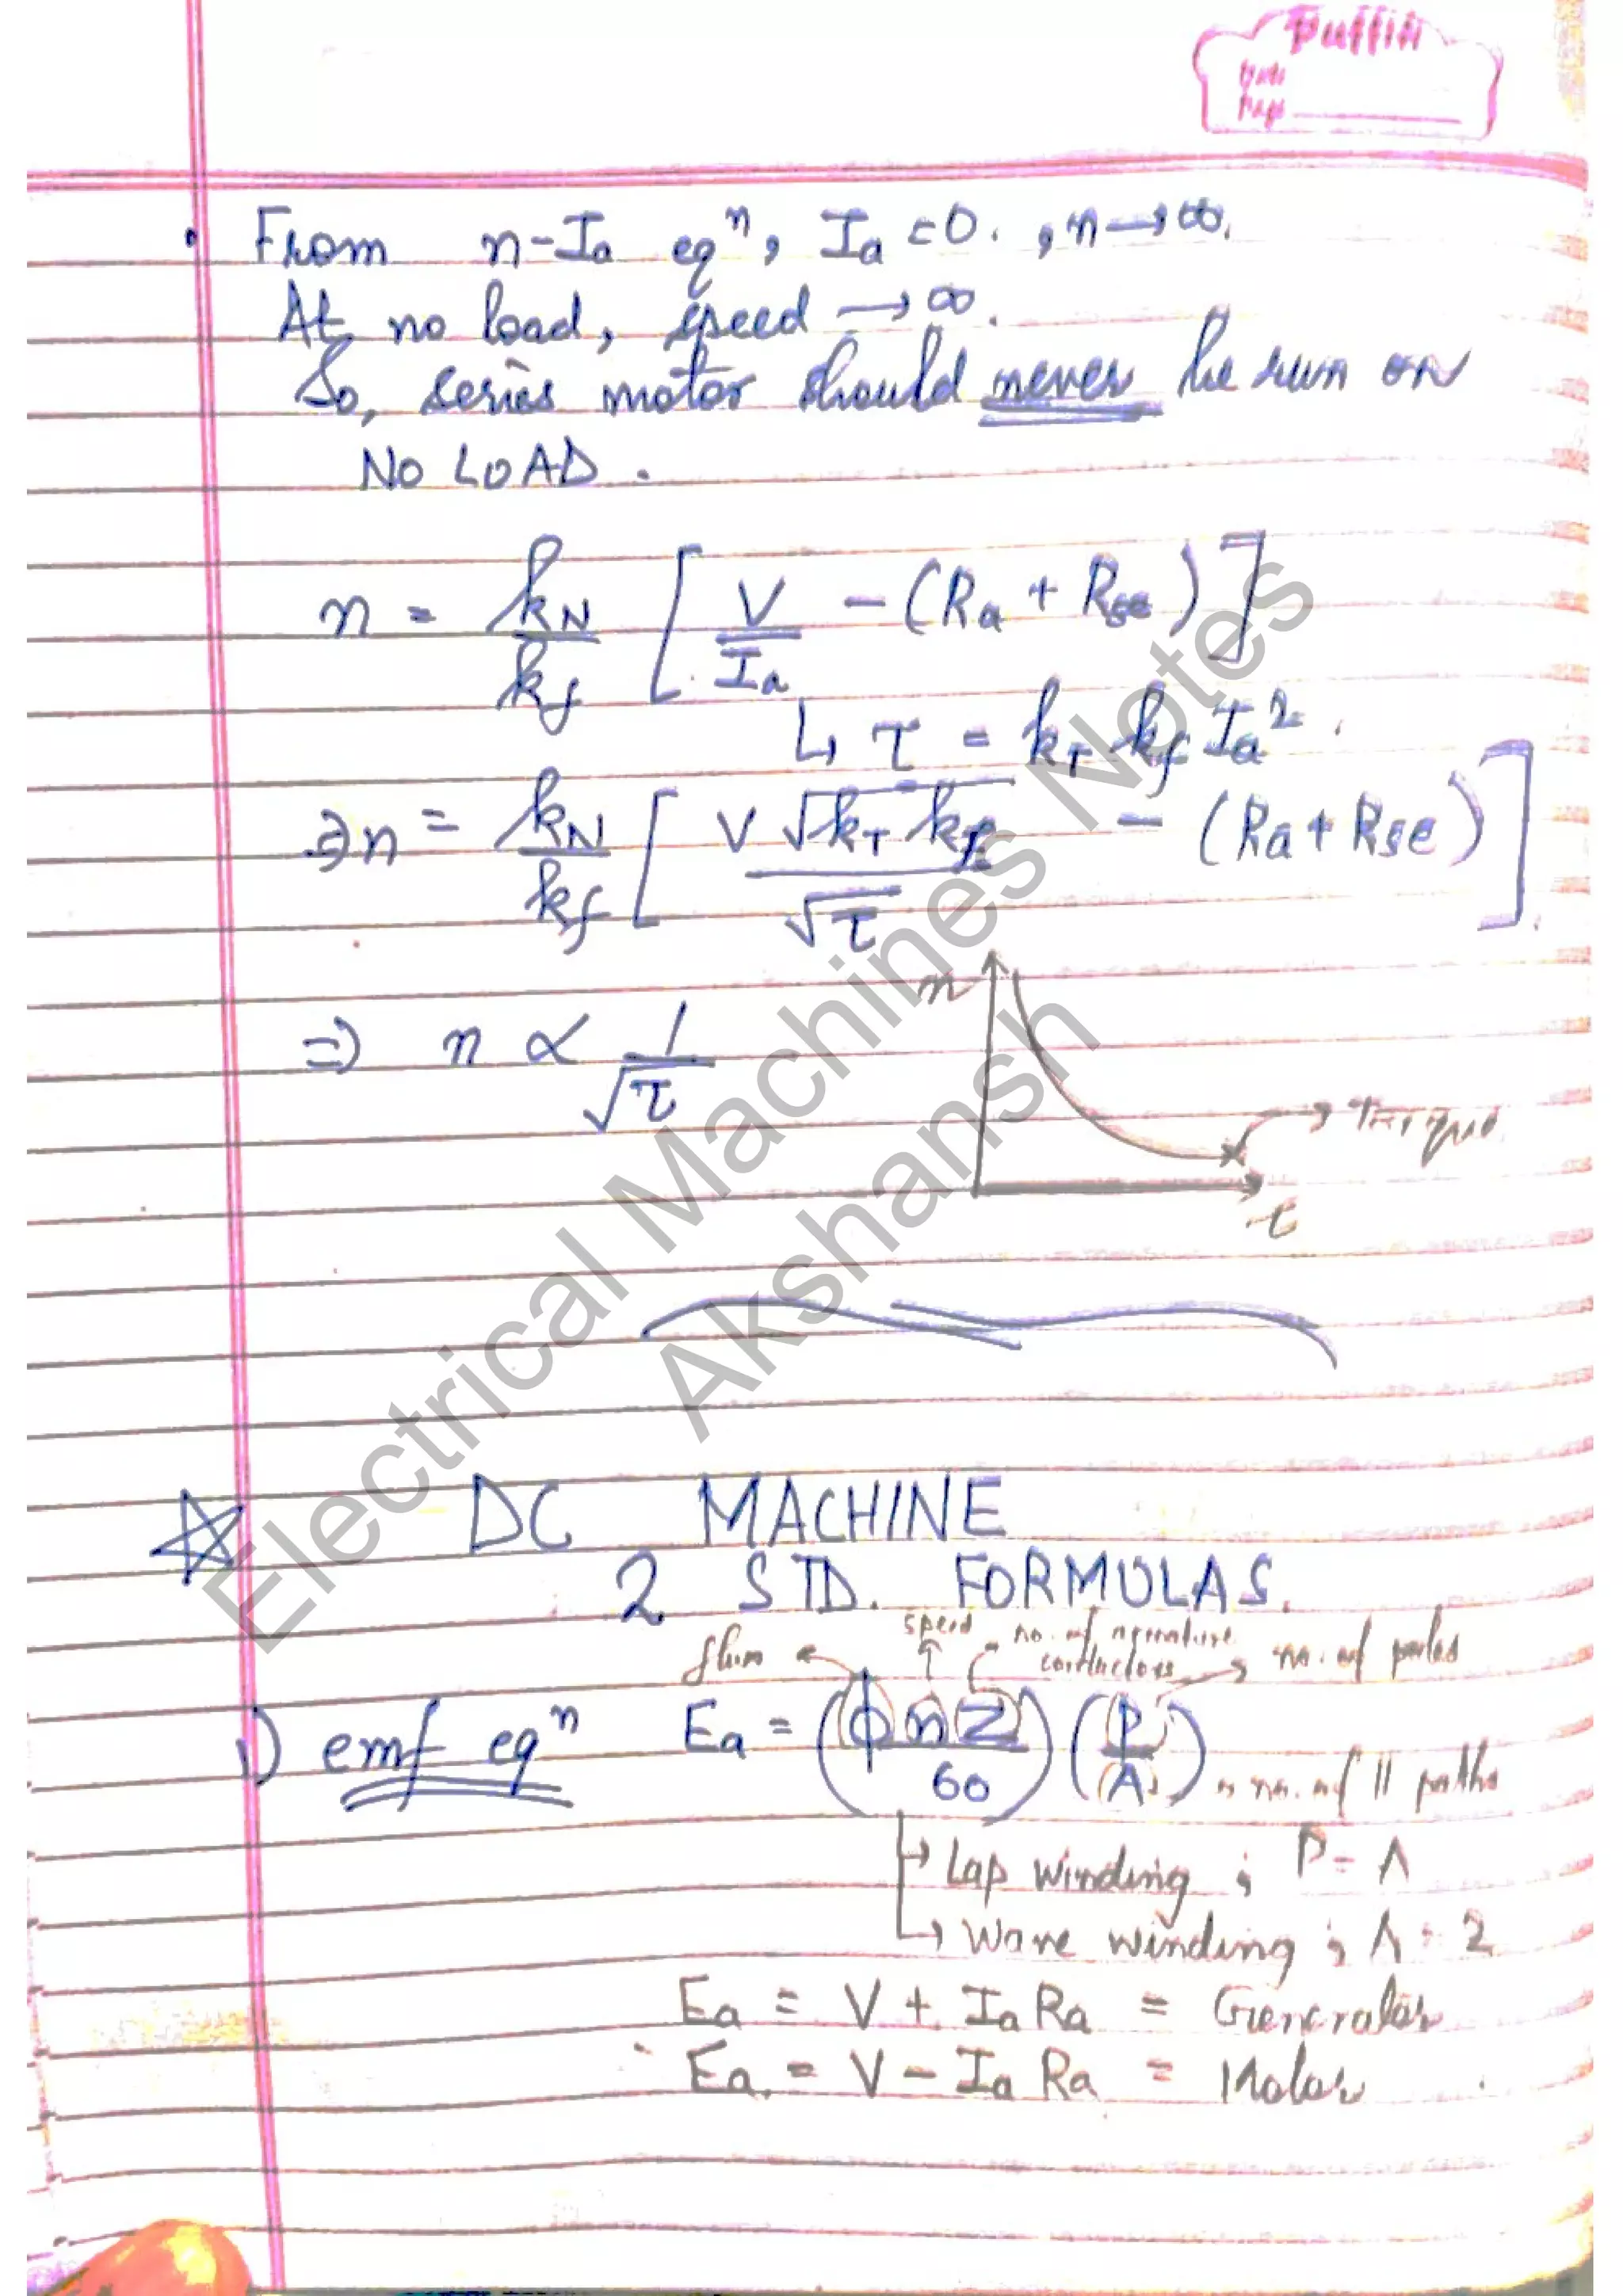 Puffin
Date
Page
• From n-Ia eqⁿ, Ia = 0. , n → ∞.
At no load, speed → ∞.
So, series motor should never be run on
NO LOAD.
n = kN/kf [ V/Ia - (Ra + Rse) ]
↳ τ = kT kf Ia²
⇒ n = kN/kf [ V √kT kf / √τ - (Ra + Rse) ]
⇒ n ∝ 1/√τ
n
τ
Electrical Machines Notes
Akshansh
☆ DC MACHINE
2 STD. FORMULAS.
flux speed no. of armature conductors no. of poles
1) emf eqⁿ Ea = (ϕnZ/60) (P/A) → no. of || paths
↳ Lap winding ; P = A
↳ Wave winding ; A = 2
Ea = V + Ia Ra = Generator
Ea = V - Ia Ra = Motor